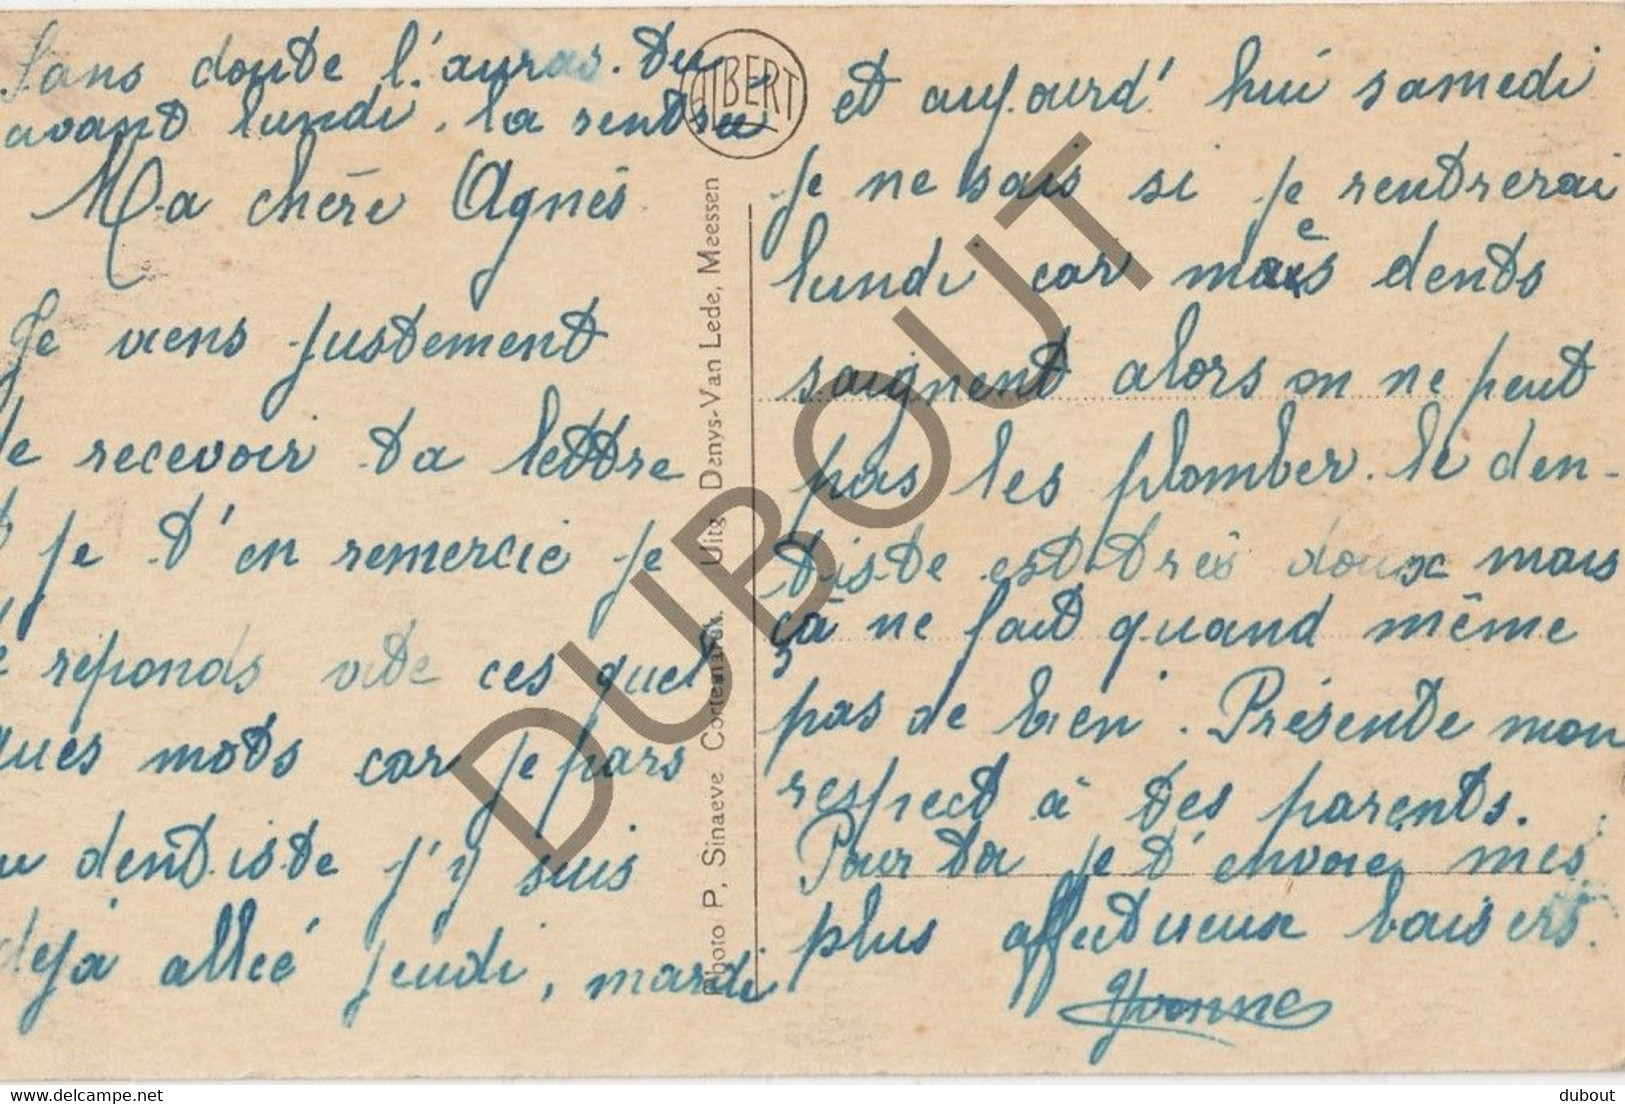 Sans doute l'auras-tu
avant lundi, la rentrée
Ma chère Agnès
Je viens justement
de recevoir ta lettre
je t'en remercie je
réponds vite ces quel
ques mots car je pars
dentiste j'y suis
déjà allée jeudi, mardi
et aujourd'hui samedi
je ne sais si je rentrerai
lundi car mes dents
saignent alors on ne peut
pas les plomber. le den-
tiste est très doux mais
çà ne fait quand même
pas de bien. Présente mon
respect à tes parents.
Pour toi je t'envoie mes
plus affectueux baisers.
Yvonne
ALBERT
Photo P. Sinaeve Cortemark. Uitg Denys-Van Lede, Meessen
DUBOUT
dubout